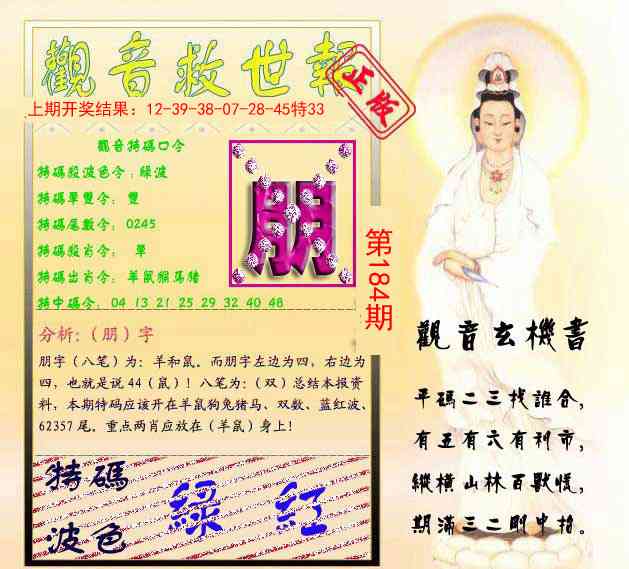 觀音救世報
正版
上期开奖结果：12-39-38-07-28-45特33
觀音特碼口令
特碼殺波色令：綠波
特碼單雙令：雙
特碼尾數令：0245
特碼殺肖令：單
特碼出肖令：羊鼠猴馬豬
特中碼令：04 13 21 25 29 32 40 48
朋
第184期
分析:（朋）字
朋字（八笔）为：羊和鼠。而朋字左边为四，右边为
四，也就是说44（鼠）！八笔为：（双）总结本报资
料，本期特码应该开在羊鼠狗兔猪马、双数、蓝红波、
62357尾。重点两肖应放在（羊鼠）身上！
特碼
波色
綠 紅
觀音玄機書
平碼二三找誰合，
有五有六有利市，
縱橫山林百獸慌，
期滿三二剛中格。